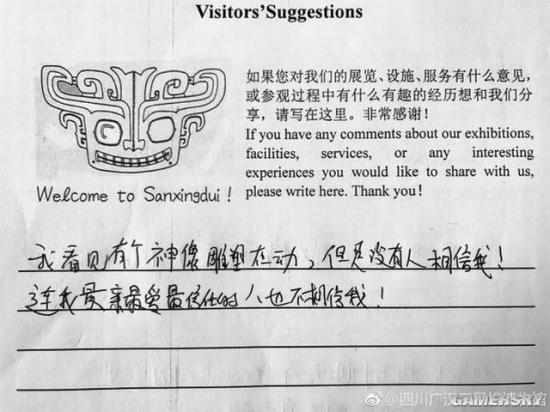 Visitors'Suggestions
如果您对我们的展览、设施、服务有什么意见，
或参观过程中有什么有趣的经历想和我们分
享，请写在这里。非常感谢！
If you have any comments about our exhibitions,
facilities, services, or any interesting
experiences you would like to share with us,
please write here. Thank you!
Welcome to Sanxingdui!
我看见有个神像雕塑在动，但是没有人相信我！
连我最亲最爱最信任的人也不相信我！
@四川广汉三星堆博物馆
GAMERSKY